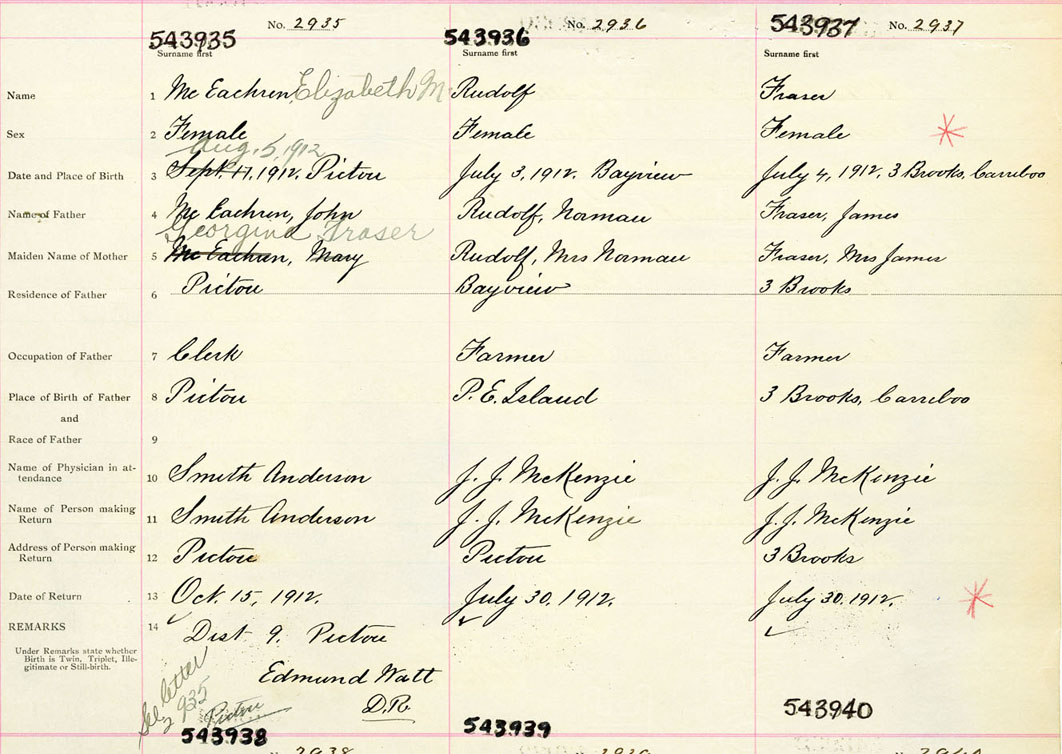 No. 2935 No. 2936 No. 2937
543935 543936 543937
Surname first Surname first Surname first
Name 1 Mc Eachren, Elizabeth M Rudolf Fraser
Sex 2 Female Female Female
Aug. 5, 1912
Date and Place of Birth 3 Sept. 17, 1912. Pictou July 3, 1912. Bayview July 4, 1912, 3 Brooks, Carriboo
Name of Father 4 Mc Eachren, John Rudolf, Norman Fraser, James
Georgina Fraser
Maiden Name of Mother 5 Mc Eachren, Mary Rudolf, Mrs Norman Fraser, Mrs James
Residence of Father 6 Pictou Bayview 3 Brooks
Occupation of Father 7 Clerk Farmer Farmer
Place of Birth of Father 8 Pictou P. E. Island 3 Brooks, Carriboo
and
Race of Father 9
Name of Physician in at-
tendance 10 Smith Anderson J. J. McKenzie J. J. McKenzie
Name of Person making
Return 11 Smith Anderson J. J. McKenzie J. J. McKenzie
Address of Person making
Return 12 Pictou Pictou 3 Brooks
Date of Return 13 Oct. 15, 1912. July 30, 1912. July 30, 1912.
REMARKS 14 Dist 9. Pictou
Under Remarks state whether
Birth is Twin, Triplet, Ille-
gitimate or Still-birth.
Edmund Watt
letter
935 Pictou D.R.
543938 543939 543940
2938